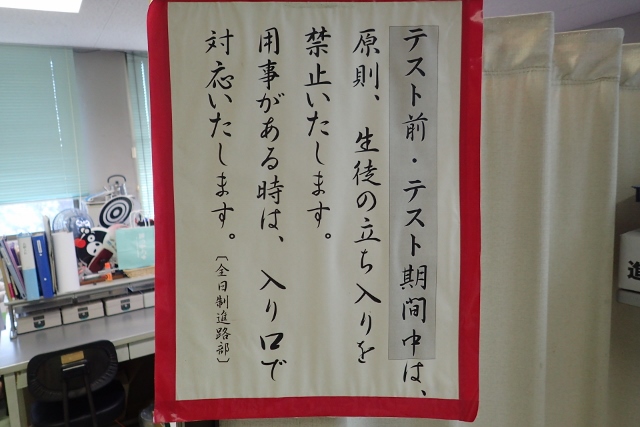 テスト前・テスト期間中は、
原則、生徒の立ち入りを
禁止いたします。
用事がある時は、入り口で
対応いたします。
〔全日制進路部〕
進